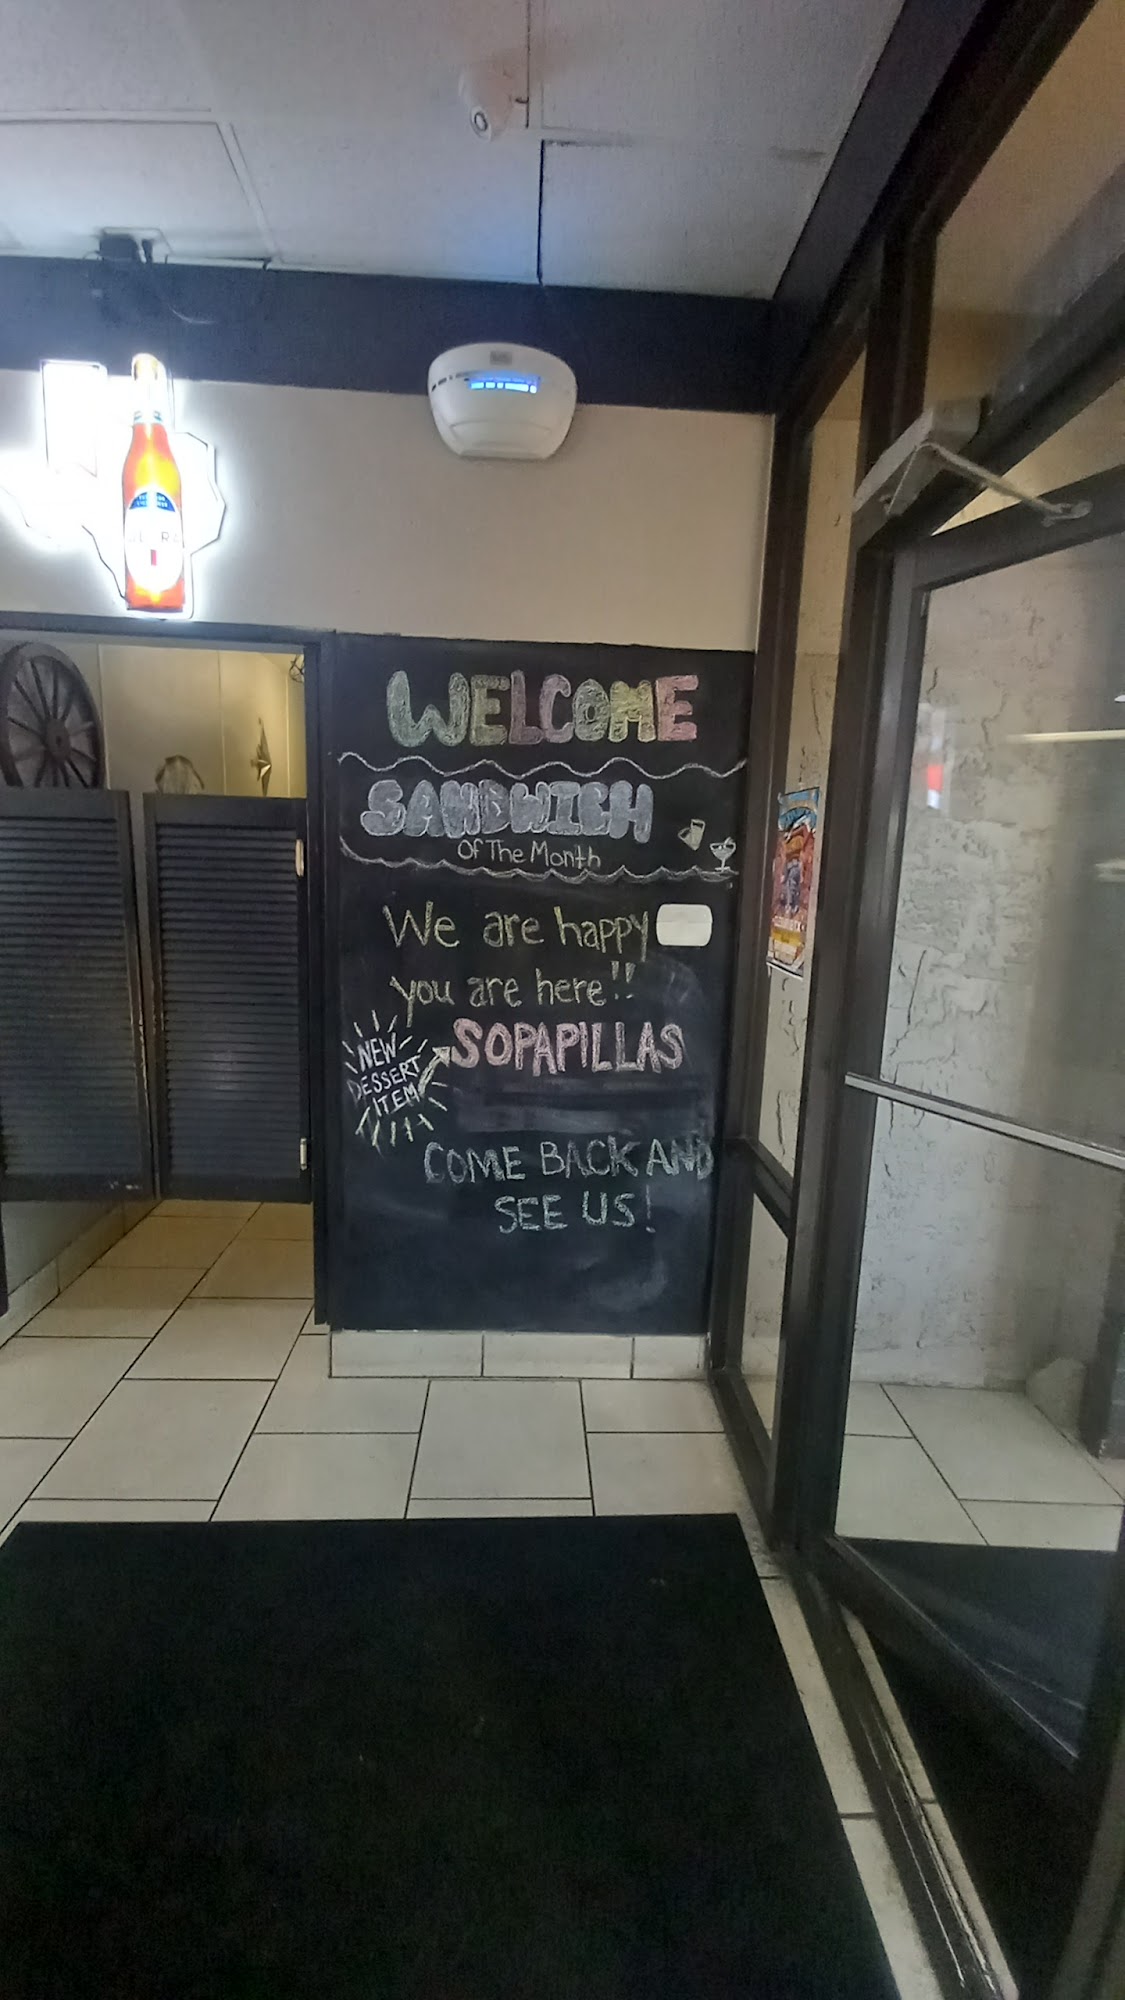 WELCOME
SANDWICH
Of The Month
We are happy
you are here!!
SOPAPILLAS
NEW
DESSERT
ITEM
COME BACK AND
SEE US!